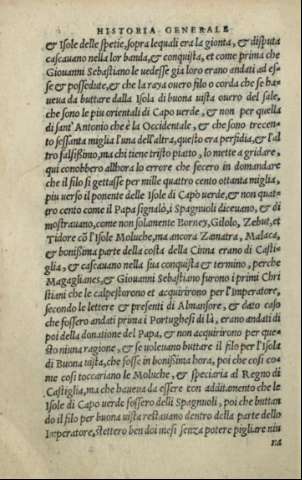 HISTORIA GENERALE
& Isole delle spetie, sopra lequali era la gionta, & disputa
cascauano nella lor banda, & conquista, et come prima che
Giouanni Sebastiano le uedesse gia loro erano andati ad es-
se & possedute, & che la raya ouero filo o corda che se ha-
ueua da buttare dalla Isola di buona uista ouero del sale,
che sono le piu orientali di Capo uerde, & non per quella
di sant'Antonio che è la Occidentale, & che sono trecen-
to sessanta miglia l'una dell'altra, questo era perfidia, & l'al
tro falsissimo, ma chi tiene tristo piatto, lo mette a gridare,
qui conobbero allhora lo errore che fecero in domandare
che il filo si gettasse per mille quattro cento ottanta miglia,
piu uerso il ponente delle Isole di Capo uerde, & non quat-
tro cento come il Papa signalò, i Spagnuoli diceuano, & di
mostrauano, come non solanente Borney, Gilolo, Zebut, et
Tidore cõ l'Isole Moluche, ma ancora Zamatra, Malaca,
& bonissima parte della costa della Cinna erano di Casti-
glia, & cascauano nella sua conquista & termino, perche
Magaglianes, & Giouanni Sebastiano furono i primi Chri
stiani che le calpestorono et acquirirono per l'Imperatore,
secondo le lettere & presenti di Almansore, & dato caso
che fossero andati prima i Portughesi di là, erano andati di
poi della donatione del Papa, & non acquirirono per que-
sto niuna ragione, & se uoleuano buttare il filo per l'Isola
di Buona uista, che fosse in bonissima hora, poi che cosi co-
me cosi toccariano le Moluche, & speciaria al Regno di
Castiglia, ma che haueua da essere con additamento che le
Isole di Capo uerde fossero delli Spagnuoli, poi che buttan
do il filo per buona uista restauano dentro della parte dello
Imperatore, stettero ben doi mesi senza potere pigliare niu
na